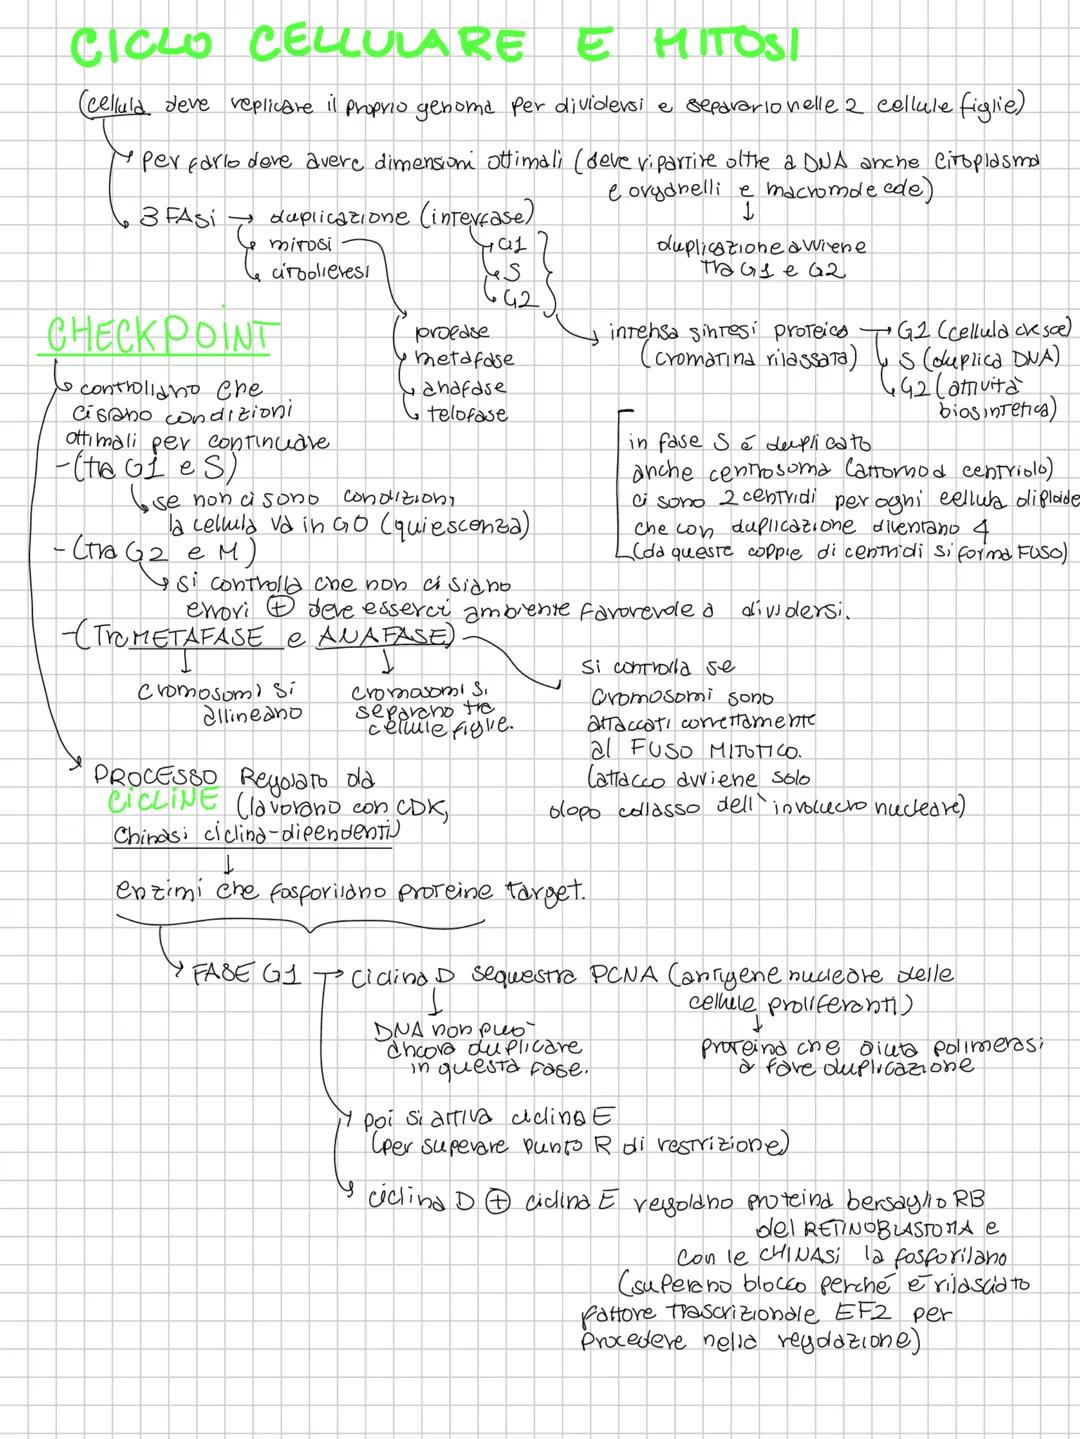 CICLO CELLULARE E MITOSI
(cellula deve replicare il proprio genoma per dividersi e separarlo nelle 2 cellule figlie)
per farlo deve avere dimensioni ottimali (deve ripartire oltre a DNA anche citoplasma
e organelli e macromolecole)
duplicazione avviene
tra G1 e G2
3 FASi → duplicazione (interfase)
mitosi
citodieresi
G1
S
G2
profase
metafase
anafase
telofase
intensa sintesi proteica
(cromatina rilassata)
G2 (cellula cresce)
S (duplica DNA)
G2 (attività
biosintetica)
in fase S é duplicato
anche centrosoma (attorno a centriolo)
ci sono 2 centrioli per ogni cellula diploide
che con duplicazione diventano 4
(da queste coppie di centrioli si forma FUSO)
CHECKPOINT
controllano che
ci siano condizioni
ottimali per continuare
-(tra G1 e S)
se non ci sono condizioni
la cellula va in G0 (quiescenza)
-(tra G2 e M)
si controlla che non ci siano
errori ⊕ deve esserci ambiente favorevole a dividersi.
-(Tra METAFASE e ANAFASE)
cromosomi si
allineano
cromosomi si
separano tra
cellule figlie.
si controlla se
cromosomi sono
attaccati correttamente
al FUSO MITOTICO.
(attacco avviene solo
dopo collasso dell'involucro nucleare)
PROCESSO Regolato da
CICLINE (lavorano con CDK,
Chinasi ciclina-dipendenti)
enzimi che fosforilano proteine target.
FASE G1 → ciclina D sequestra PCNA (antigene nucleare delle
cellule proliferanti)
DNA non può
ancora duplicare
in questa fase.
proteina che aiuta polimerasi
a fare duplicazione
poi si attiva ciclina E
(per superare punto R di restrizione)
ciclina D ⊕ ciclina E regolano proteina bersaglio RB
del RETINOBLASTOMA e
con le CHINASi la fosforilano
(superano blocco perché é rilasciato
fattore trascrizionale EF2 per
procedere nella regolazione)